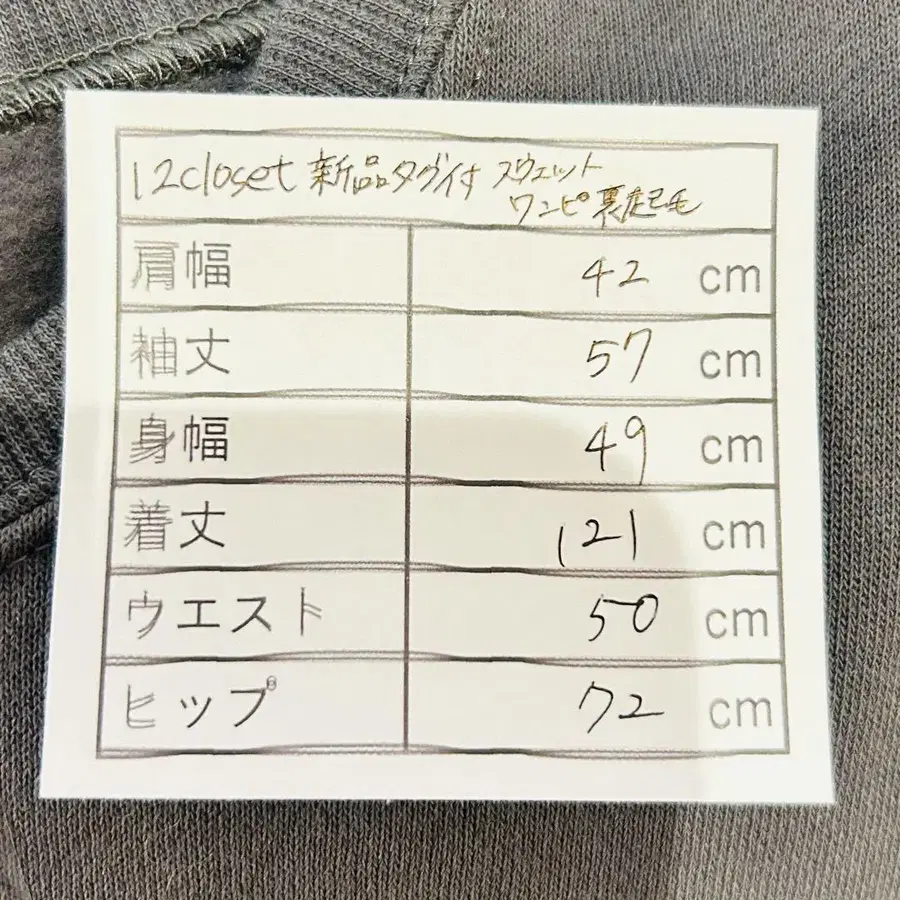 12closet 新品タグ付 スウェット
ワンピ 裏起毛
肩幅 42 cm
袖丈 57 cm
身幅 49 cm
着丈 121 cm
ウエスト 50 cm
ヒップ 72 cm